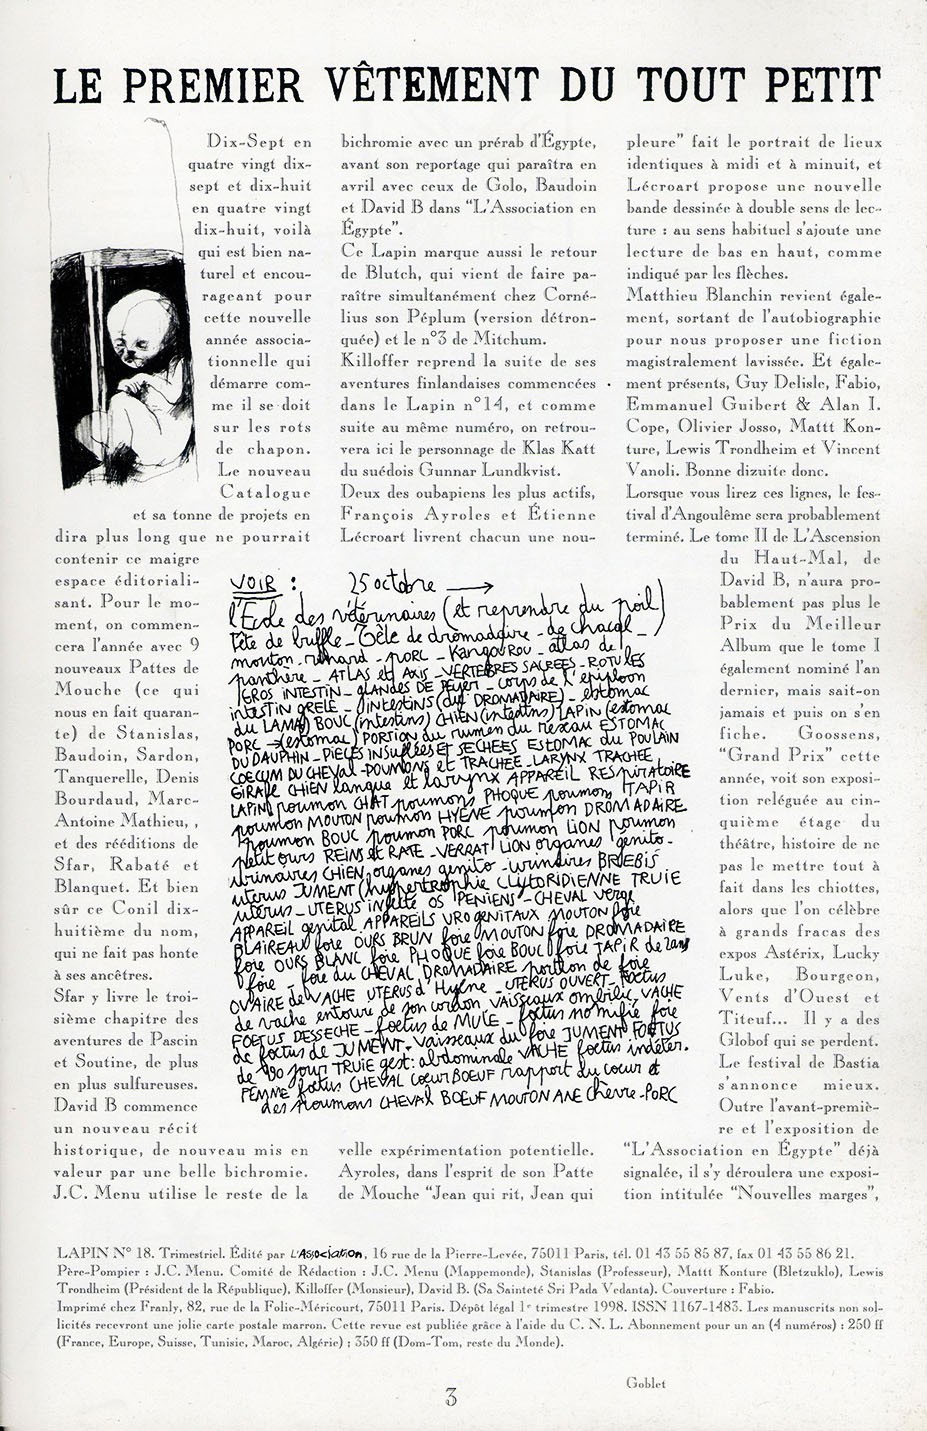 LE PREMIER VÊTEMENT DU TOUT PETIT
Dix-Sept en
quatre vingt dix-
sept et dix-huit
en quatre vingt
dix-huit, voilà
qui est bien na-
turel et encou-
rageant pour
cette nouvelle
année associa-
tionnelle qui
démarre com-
me il se doit
sur les rots
de chapon.
Le nouveau
Catalogue
et sa tonne de projets en
dira plus long que ne pourrait
contenir ce maigre
espace éditoriali-
sant. Pour le mo-
ment, on commen-
cera l'année avec 9
nouveaux Pattes de
Mouche (ce qui
nous en fait quaran-
te) de Stanislas,
Baudoin, Sardon,
Tanquerelle, Denis
Bourdaud, Marc-
Antoine Mathieu, ,
et des rééditions de
Sfar, Rabaté et
Blanquet. Et bien
sûr ce Conil dix-
huitième du nom,
qui ne fait pas honte
à ses ancêtres.
Sfar y livre le troi-
sième chapitre des
aventures de Pascin
et Soutine, de plus
en plus sulfureuses.
David B commence
un nouveau récit
historique, de nouveau mis en
valeur par une belle bichromie.
J.C. Menu utilise le reste de la
bichromie avec un prérab d'Égypte,
avant son reportage qui paraîtra en
avril avec ceux de Golo, Baudoin
et David B dans "L'Association en
Égypte".
Ce Lapin marque aussi le retour
de Blutch, qui vient de faire pa-
raître simultanément chez Corné-
lius son Péplum (version détron-
quée) et le n°3 de Mitchum.
Killoffer reprend la suite de ses
aventures finlandaises commencées
dans le Lapin n°14, et comme
suite au même numéro, on retrou-
vera ici le personnage de Klas Katt
du suédois Gunnar Lundkvist.
Deux des oubapiens les plus actifs,
François Ayroles et Étienne
Lécroart livrent chacun une nou-
velle expérimentation potentielle.
Ayroles, dans l'esprit de son Patte
de Mouche "Jean qui rit, Jean qui
pleure" fait le portrait de lieux
identiques à midi et à minuit, et
Lécroart propose une nouvelle
bande dessinée à double sens de lec-
ture : au sens habituel s'ajoute une
lecture de bas en haut, comme
indiqué par les flèches.
Matthieu Blanchin revient égale-
ment, sortant de l'autobiographie
pour nous proposer une fiction
magistralement lavissée. Et égale-
ment présents, Guy Delisle, Fabio,
Emmanuel Guibert & Alan I.
Cope, Olivier Josso, Mattt Kon-
ture, Lewis Trondheim et Vincent
Vanoli. Bonne dizuite donc.
Lorsque vous lirez ces lignes, le fes-
tival d'Angoulême sera probablement
terminé. Le tome II de L'Ascension
du Haut-Mal, de
David B, n'aura pro-
bablement pas plus le
Prix du Meilleur
Album que le tome I
également nominé l'an
dernier, mais sait-on
jamais et puis on s'en
fiche. Goossens,
"Grand Prix" cette
année, voit son exposi-
tion reléguée au cin-
quième étage du
théâtre, histoire de ne
pas le mettre tout à
fait dans les chiottes,
alors que l'on célèbre
à grands fracas des
expos Astérix, Lucky
Luke, Bourgeon,
Vents d'Ouest et
Titeuf... Il y a des
Globof qui se perdent.
Le festival de Bastia
s'annonce mieux.
Outre l'avant-premiè-
re et l'exposition de
"L'Association en Égypte" déjà
signalée, il s'y déroulera une exposi-
tion intitulée "Nouvelles marges",
VOIR : 25 octobre →
l'Ecole des vétérinaires (et reprendre du poil)
Tête de buffle - Tête de dromadaire - de chacal -
mouton - renard - porc - Kangourou - atlas de
panthère - ATLAS et AXIS - VERTEBRES SACREES - ROTULES
GROS INTESTIN - GLANDES DE PEYER - corps de l'épiploon
intestin GRELE - intestins (du DROMADAIRE) - estomac
du LAMA) BOUC (intestins) CHIEN (intestins) LAPIN (estomac
PORC → (estomac) PORTION du rumen du reseau ESTOMAC
DU DAUPHIN - PIECES INSUFFLEES ET SECHEES ESTOMAC du POULAIN
COECUM DU CHEVAL - POUMONS et TRACHEE - LARYNX TRACHEE
GIRAFE CHIEN langue et larynx APPAREIL RESPIRATOIRE
LAPIN poumon CHAT poumons PHOQUE poumons TAPIR
poumon MOUTON poumon HYENE poumon DROMADAIRE
poumon BOUC poumon PORC poumon LION poumon
petit ours REINS et RATE - VERRAT LION organes génito-
urinaires CHIEN organes genito - urinaires BREBIS
uterus JUMENT (hypertrophie CLYTORIDIENNE TRUIE
uterus - UTERUS infecté OS PENIENS - CHEVAL verge
APPAREIL genital APPAREILS UROGENITAUX MOUTON foie
BLAIREAU foie OURS BRUN foie MOUTON foie DROMADAIRE
foie OURS BLANC foie PHOQUE foie BOUC foie TAPIR de 2 ans
foie - foie du CHEVAL DROMADAIRE portion de foie
OVAIRE de VACHE UTERUS d'Hyène - UTERUS OUVERT - Foetus
de vache entouré de son cordon VAISSEAUX ombilic. VACHE
FOETUS DESSECHE - foetus de MULE - foetus momifié foie
de foetus de JUMENT - vaisseaux du foie JUMENT FOETUS
de 190 jour TRUIE gest: abdominale VACHE foetus indéter.
FEMME foetus CHEVAL COEUR BOEUF rapport du coeur et
des poumons CHEVAL BOEUF MOUTON ANE chèvre - PORC
LAPIN N° 18. Trimestriel. Édité par L'Association, 16 rue de la Pierre-Levée, 75011 Paris, tél. 01 43 55 85 87, fax 01 43 55 86 21.
Père-Pompier : J.C. Menu. Comité de Rédaction : J.C. Menu (Mappemonde), Stanislas (Professeur), Mattt Konture (Bletzuklo), Lewis
Trondheim (Président de la République), Killoffer (Monsieur), David B. (Sa Sainteté Sri Pada Vedanta). Couverture : Fabio.
Imprimé chez Franly, 82, rue de la Folie-Méricourt, 75011 Paris. Dépôt légal 1er trimestre 1998. ISSN 1167-1483. Les manuscrits non sol-
licités recevront une jolie carte postale marron. Cette revue est publiée grâce à l'aide du C. N. L. Abonnement pour un an (4 numéros) : 250 ff
(France, Europe, Suisse, Tunisie, Maroc, Algérie) ; 350 ff (Dom-Tom, reste du Monde).
Goblet
3